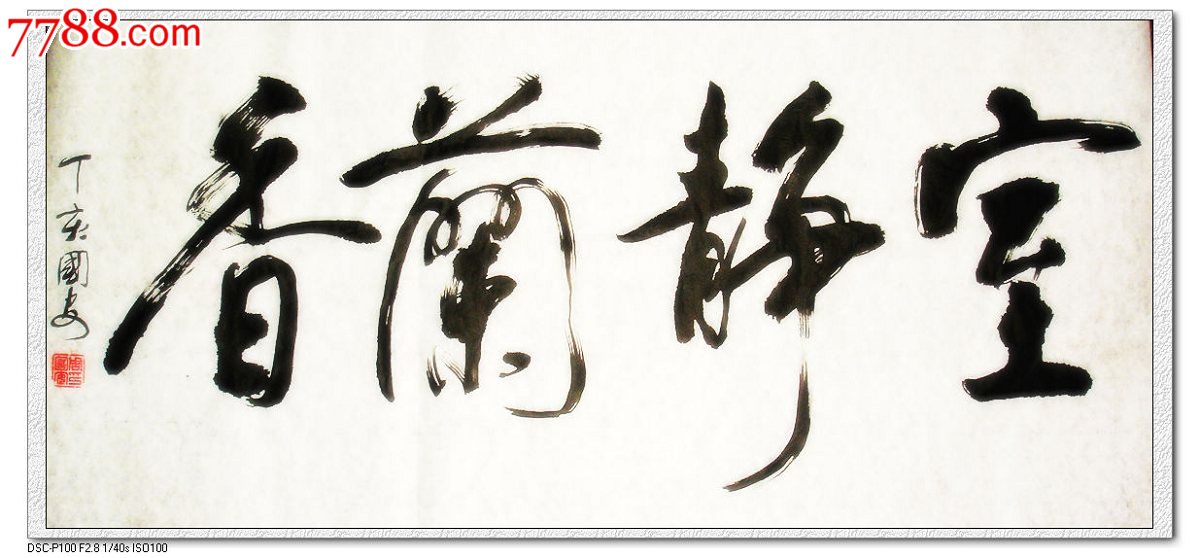 7788.com
室靜蘭香
丁亥國安
DSC-P100 F2.8 1/40s ISO100